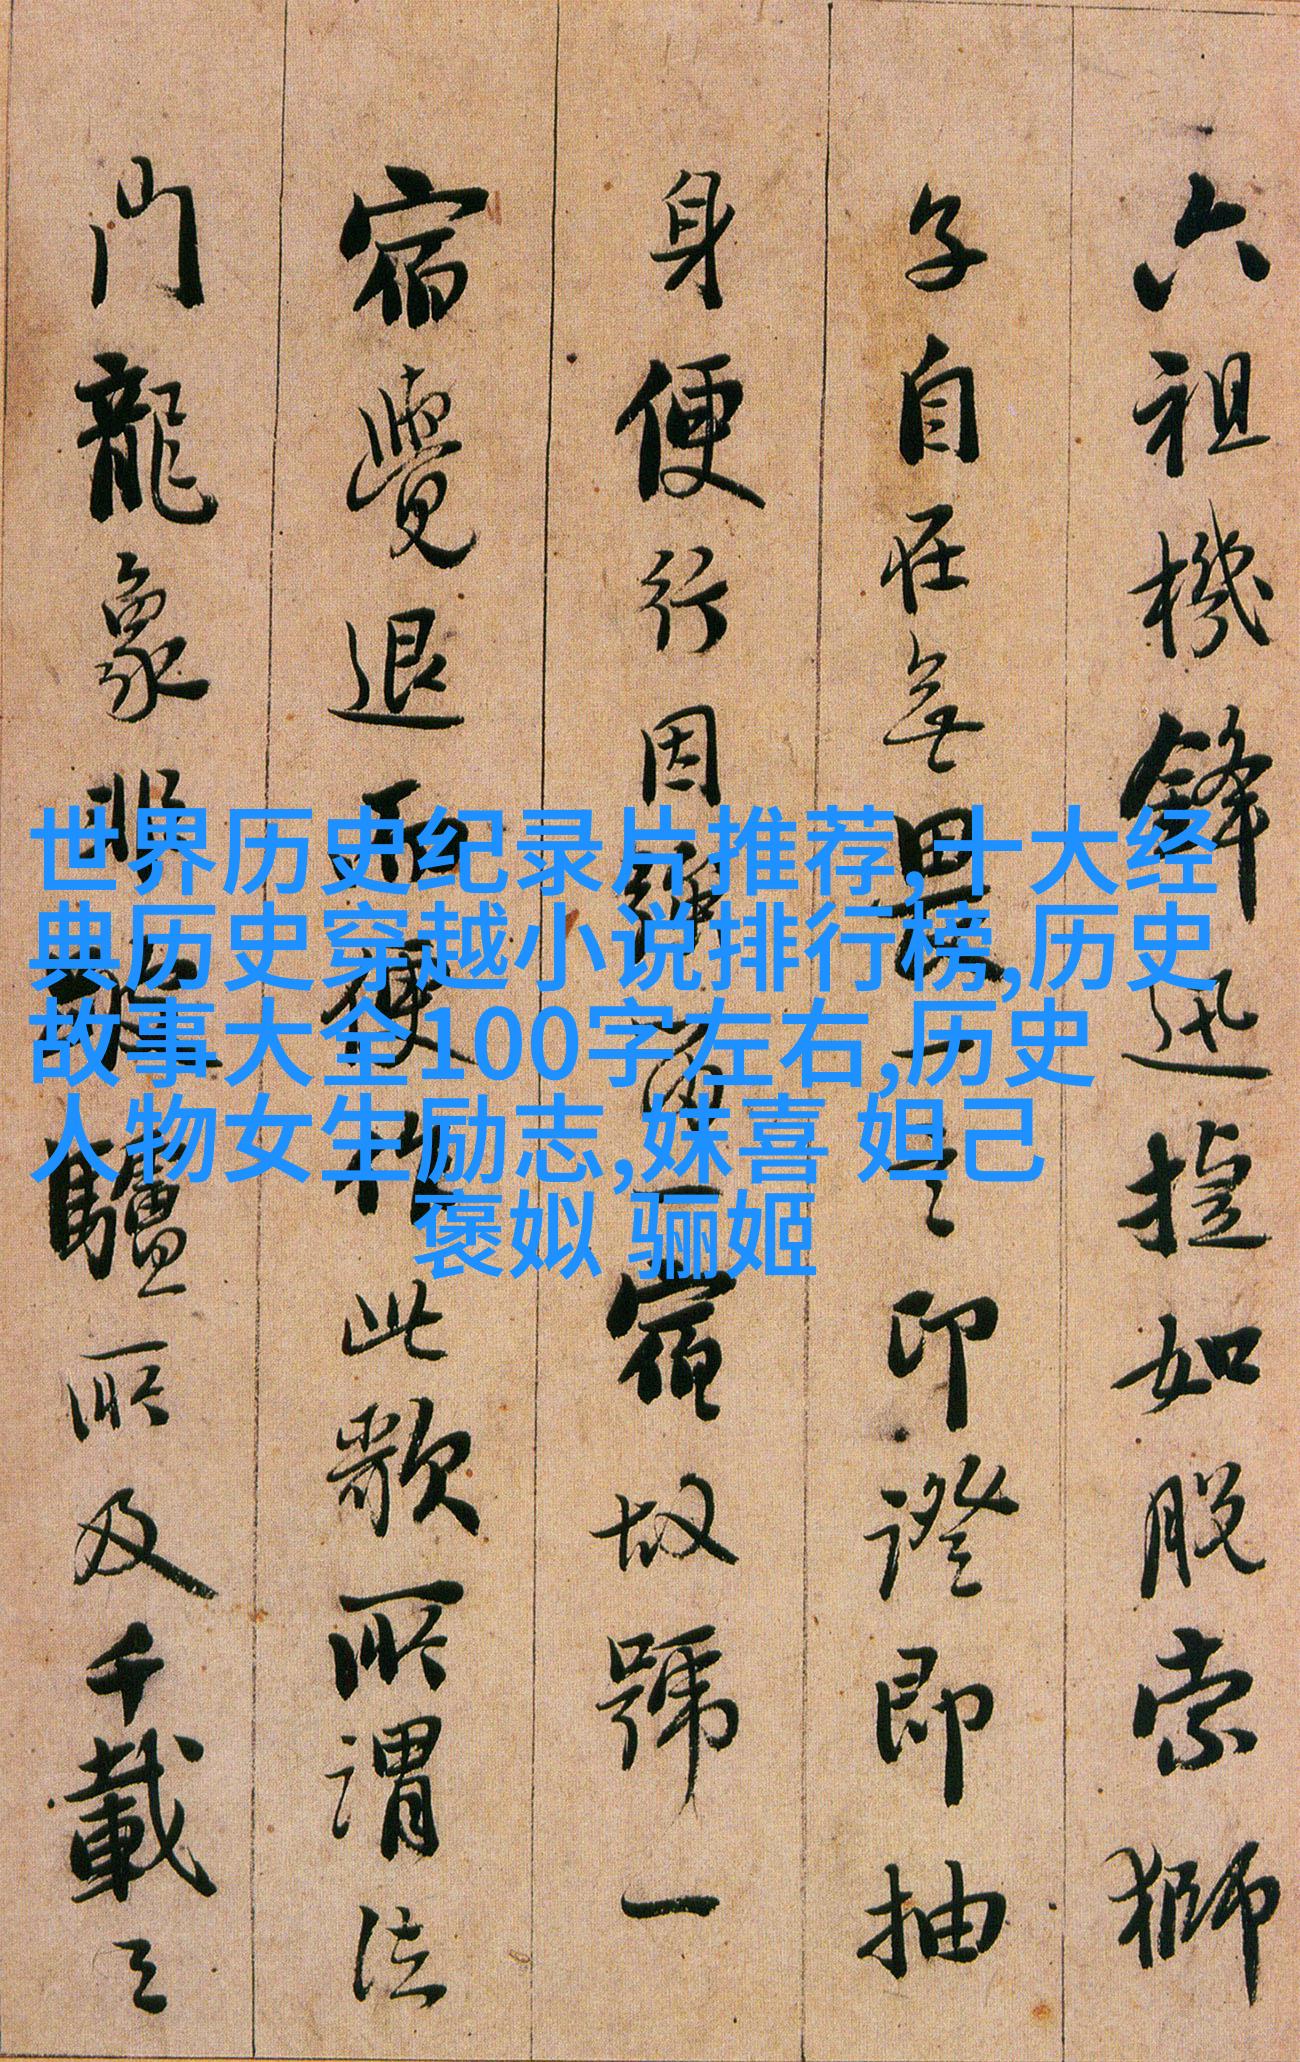 六祖機鋒迅捷如脫索獅
子自在無畏印證即抽
身便行因留一宿故號一
宿覺退而便作此歌所謂法
門龍象驢所及千載之
世界历史纪录片推荐,十大经
典历史穿越小说排行榜,历史
故事大全100字左右,历史
人物女生励志,妹喜 妲己
褒姒 骊姬